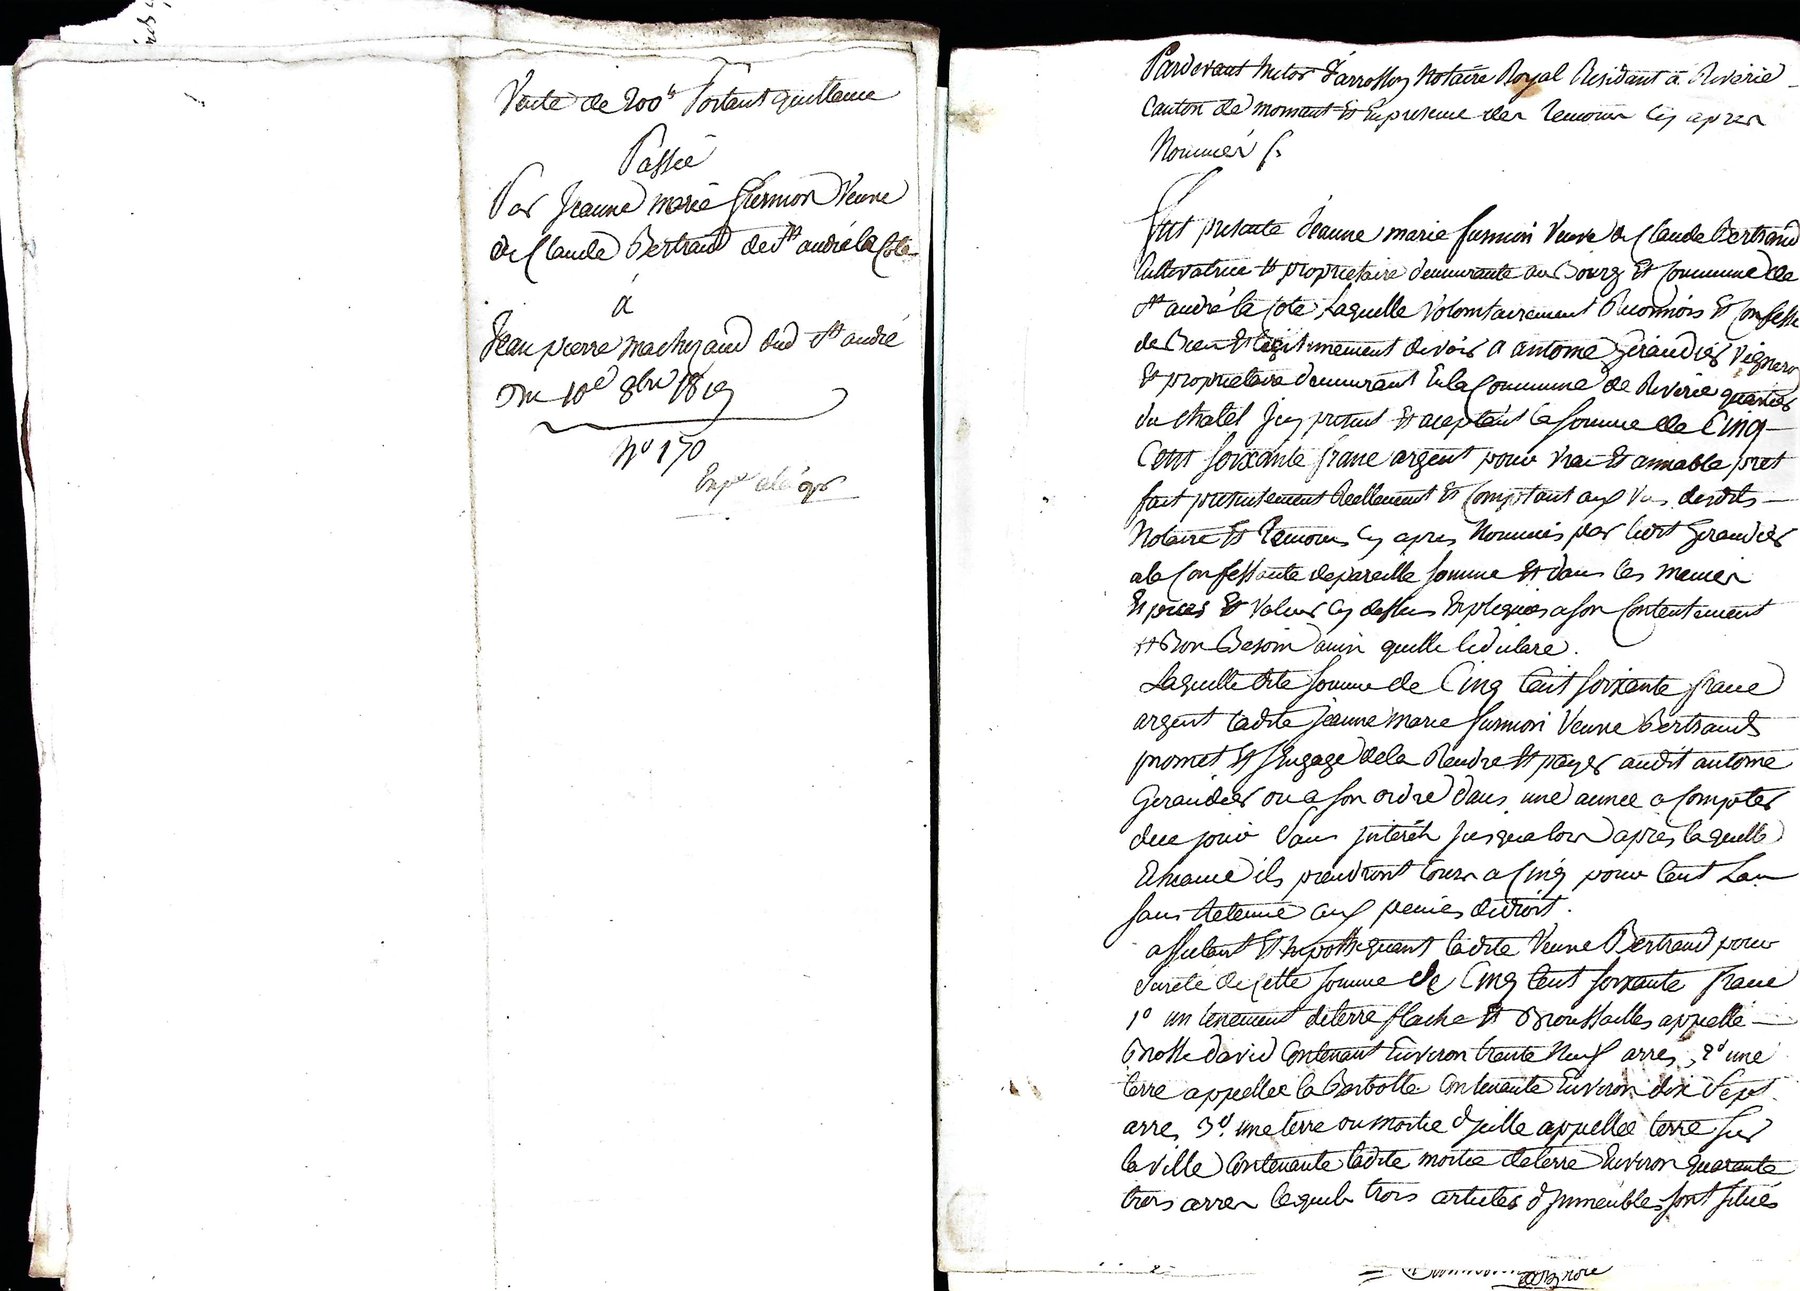 Vente de 200# Portant quittance
Passée
Par Jeanne marie fusmion Veuve
de Claude Bertrand de St andré la Cote
à
Jean pierre machizaud dud St andré
Du 10e 8bre 1819
No 170
Pardevant Notaire Royal Residant à Riverie
Canton de mornant Et En presence des Temoins Cy apres
Nommés
fut presente Jeanne marie fusmion Veuve de Claude Bertrand
Cultivatrice Et propriétaire demeurante au Bourg Et Commune de
St andré la Cote Laquelle Volontairement Reconnois Et Confesse
de Bien Et légitimement devoir a antoine Geraudier Vigneron
Et propriétaire demeurant En la Commune de Riverie quartier
du Chatel Icy présent Et aceptant la Somme de Cinq
Cent soixante franc argent pour vrai Et amiable pret
fait presentement Reellement Et Comptant aux Vus desdits
Notaire Et Temoins Cy apres Nommés par ledit Geraudier
a la Confessante de pareille somme Et dans les memes
Especes Et Valeur Cy dessus Expliquées a son Contentement
Et Bon Besoin ainsi quelle le déclare.
Laquelle dite somme de Cinq Cent soixante franc
argent ladite jeanne marie fusmion Veuve Bertrand
promet Et s'Engage de la Rendre Et payer audit antoine
Geraudier ou a son ordre dans une année a Compter
de ce jour Sans Intérêt jusqualors après laquelle
Echeance ils prendront Cours a Cinq pour Cent Lan
sans Retenue aux peines de droit.
affectant Et hypothéquant ladite Veuve Bertrand pour
Sureté de Cette somme de Cinq Cent soixante franc
1o un tenement de terre flache Et Broussailles appellé
Grosse david Contenant Environ trente Neuf arres, 2d une
terre appellée la Barbolle Contenante Environ dix Sept
arres 3d. une terre ou moitié d'icelle appellée terre sur
la ville Contenante ladite moitié de terre Environ quarante
trois arres lesquels trois articles d'Immeubles sont situés